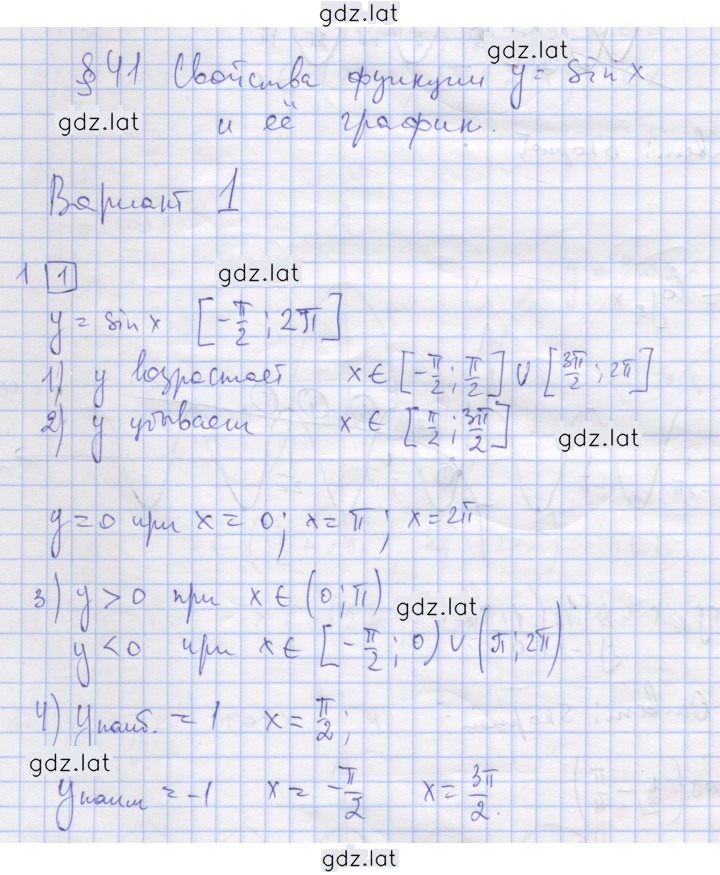 gdz.lat
gdz.lat
§ 41 Свойства функции y = sin x
gdz.lat
и её график.
Вариант 1
gdz.lat
1 1
y = sin x [-π/2; 2π]
1) y возрастает x ∈ [-π/2; π/2] ∪ [3π/2; 2π]
2) y убывает x ∈ [π/2; 3π/2]
gdz.lat
y = 0 при x = 0; x = π; x = 2π
3) y > 0 при x ∈ (0; π)
gdz.lat
y < 0 при x ∈ [-π/2; 0) ∪ (π; 2π)
4) y наиб. = 1 x = π/2;
gdz.lat
y наим = -1 x = -π/2 x = 3π/2.
gdz.lat